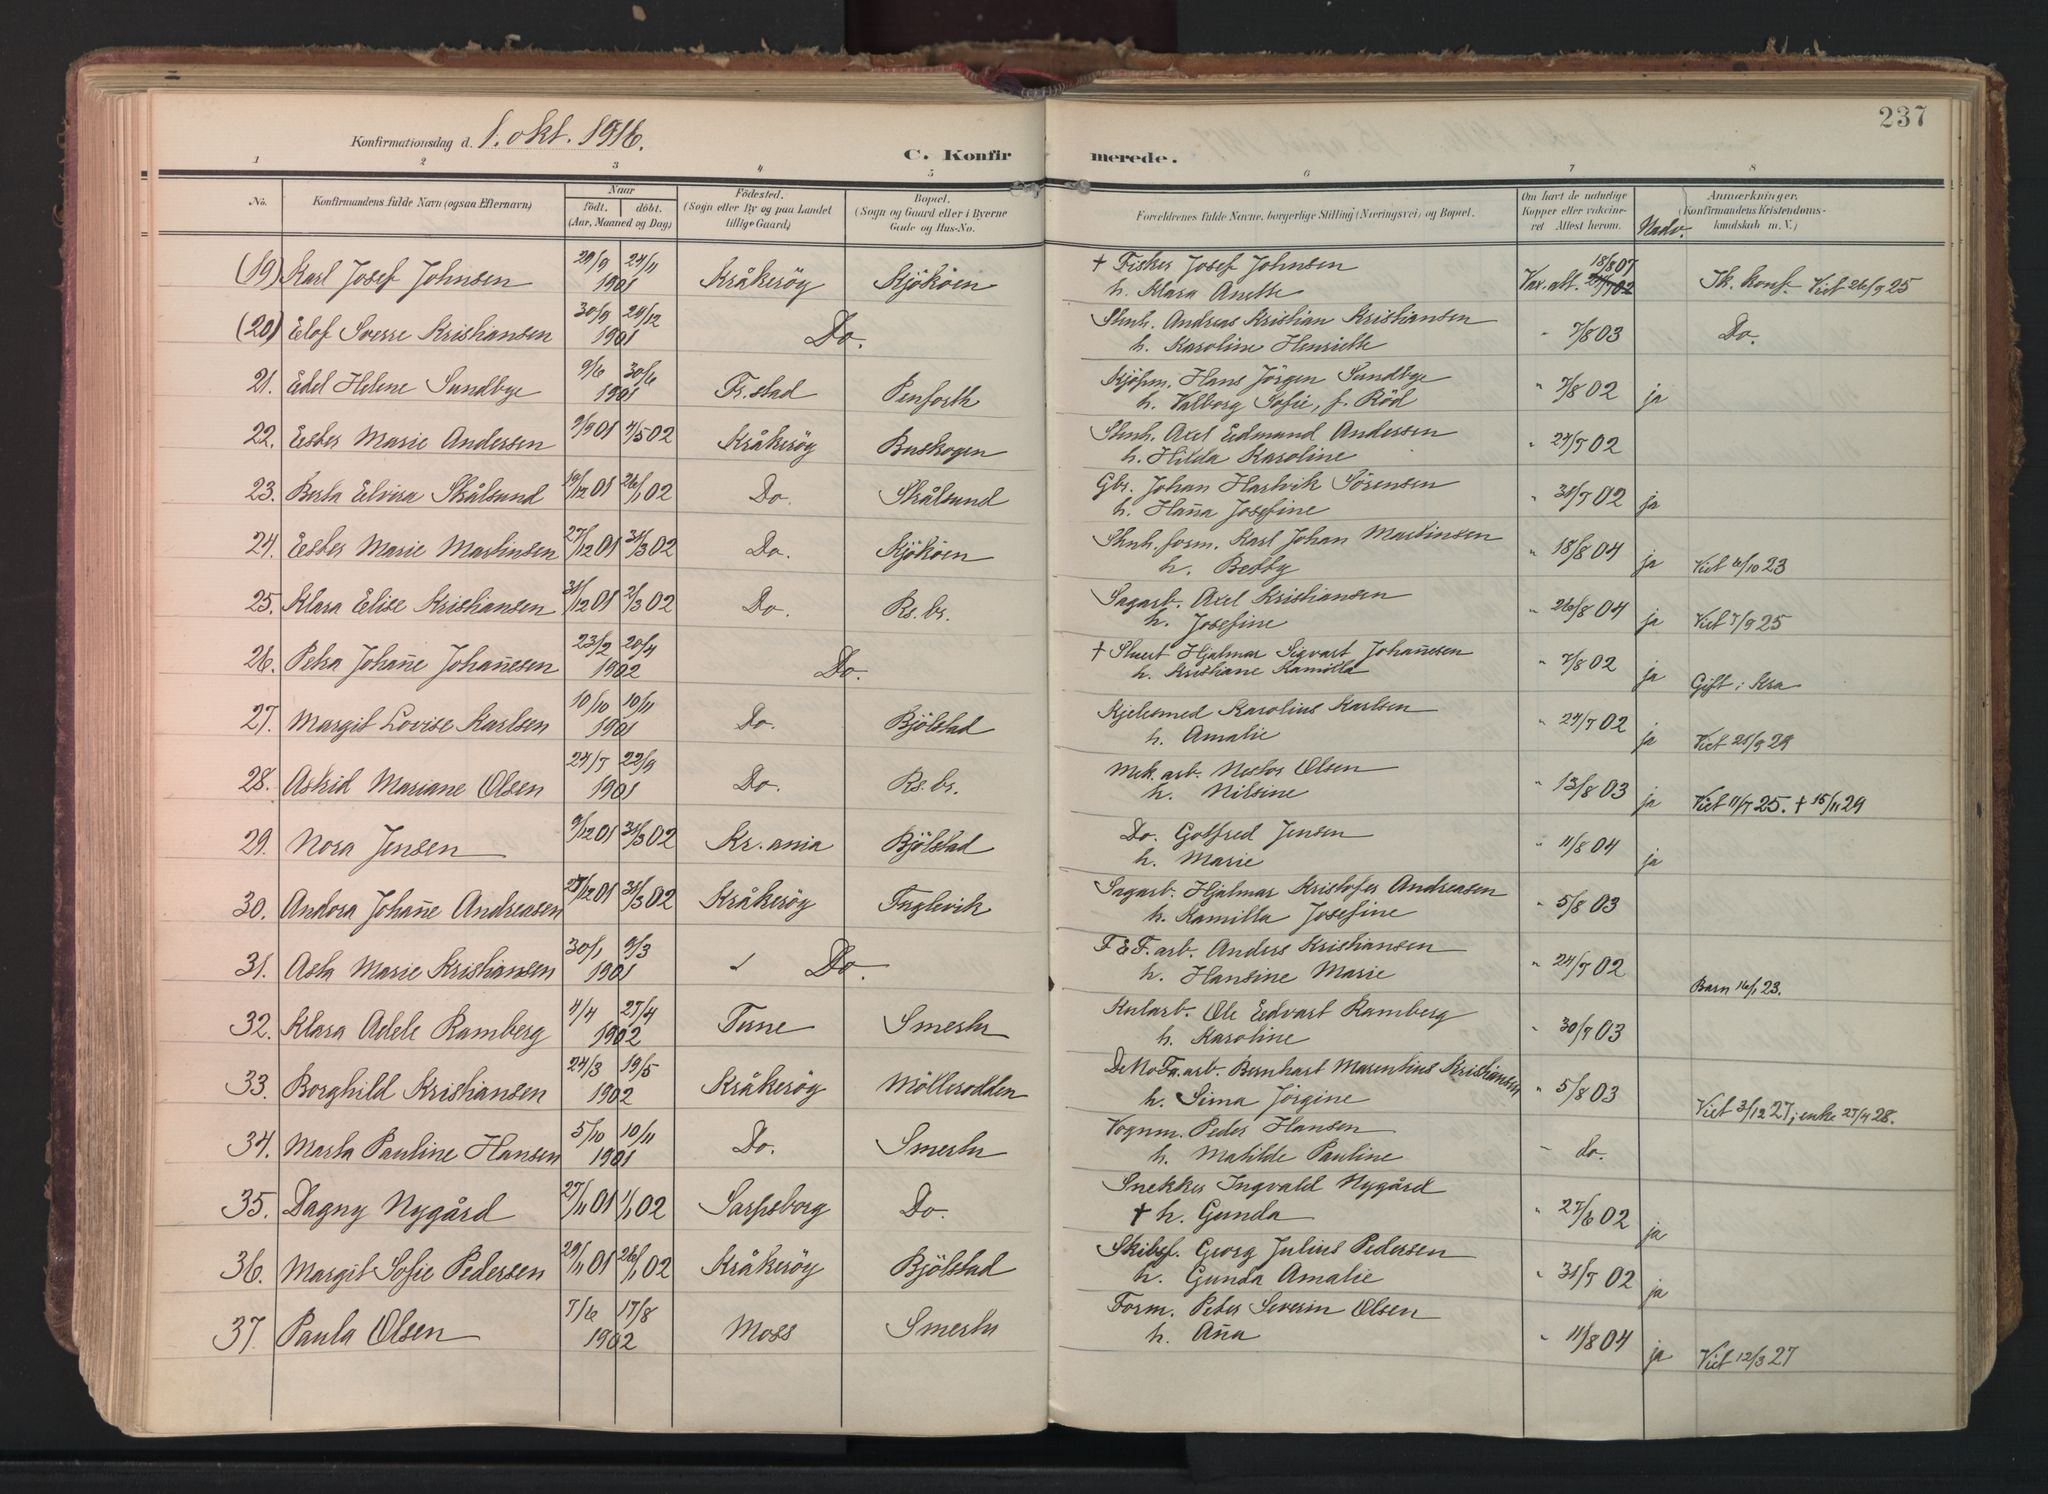 237
Konfirmationsdag d. 1. okt. 1916.
C. Konfirmerede.
1 2 3 4 5 6 7 8
No. Konfirmandens fulde Navn (ogsaa Efternavn) Naar født. døbt. (Aar, Maaned og Dag) Fødested. (Sogn eller By og paa Landet tillige Gaard) Bopæl. (Sogn og Gaard eller i Byerne Gade og Hus-No. Forældrenes fulde Navne, borgerlige Stilling (Næringsvei) og Bopæl. Om havt de naturlige Kopper eller vakcineret Attest herom. Nadv. Anmærkninger. (Konfirmandens Kristendomskundskab m. V.)
(19) Karl Josef Johnsen 29/9 24/11 1901 Kråkerøy Kjøkøen † Fisker Josef Johnsen Vax. att. 18/8 07 Ik. konf. Viet 26/9 25
h. Klara Anette
(20) Elof Sverre Kristiansen 30/9 29/12 1901 Do. Stnh. Andreas Kristian Kristiansen " 7/8 03 Do.
h. Karoline Henriette
21. Edel Helene Sundbye 9/6 30/6 1901 Fr.stad Penforth Kjøpm. Hans Jörgen Sundbye " 7/8 02 ja
h. Valborg Sofie, f. Röd
22. Ester Marie Andersen 9/9 01 4/5 02 Kråkerøy Buskogen Stnh. Axel Edmund Andersen " 24/7 02
h. Hilda Karoline
23. Berta Elvira Skålsund 19/12 01 26/1 02 Do. Skålsund Gbr. Johan Hartvik Sörensen " 31/7 02 ja
h. Han̄a Josefine
24. Ester Marie Martinsen 27/12 01 31/3 02 Do. Kjøkøen Stnh. form. Karl Johan Martinsen " 18/8 04 ja Viet 6/10 23
h. Betty
25. Klara Elise Kristiansen 31/12 01 2/3 02 Do. Rs. br. Sagarb. Axel Kristiansen " 26/8 04 ja Viet 7/9 25
h. Josefine
26. Petra Johan̄e Johan̄esen 23/2 20/4 1902 Do. † Stuert Hjalmar Sigvart Johan̄esen " 7/8 02 ja Gift i Kra
h. Kristiane Kamilla
27. Margit Lovise Karlsen 10/10 10/11 1901 Do. Bjölstad Kjelesmed Karolius Karlsen " 24/7 02 ja Viet 21/9 29
h. Amalie
28. Astrid Mariane Olsen 24/7 22/9 1901 Do. Rs. br. Mek. arb. Nestor Olsen " 13/8 03 ja Viet 11/7 25. † 15/11 29
h. Nilsine
29. Nora Jensen 9/12 01 31/3 02 Kr.ania Bjölstad Do. Gotfred Jensen " 11/8 04 ja
h. Marie
30. Andora Johan̄e Andreasen 27/12 01 31/3 02 Kråkerøy Fuglevik Sagarb. Hjalmar Kristofer Andreasen " 5/8 03
h. Kamilla Josefine
31. Asta Marie Kristiansen 30/1 9/3 1901 Do. F & F. arb. Anders Kristiansen " 24/7 02 Barn 16/1 23.
h. Hansine Marie
32. Klara Adele Ramberg 4/4 27/4 1902 Tune Smertu Kularb. Ole Edvart Ramberg " 30/7 03
h. Karoline
33. Borghild Kristiansen 24/3 19/5 1902 Kråkerøy Möllerodden DeNoFa.arb. Bernhart Marentius Kristiansen " 5/8 03 Viet 3/12 27; enke 27/4 28.
h. Sima Jörgine
34. Marta Pauline Hansen 5/10 10/11 1901 Do. Smertu Vognm. Peder Hansen - do.
h. Matilde Pauline
35. Dagny Nygård 27/11 01 1/1 02 Sarpsborg Do. Snekker Ingvald Nygård " 27/6 02 ja
† h. Gunda
36. Margit Sofie Pedersen 29/11 01 26/1 02 Kråkerøy Bjölstad Skibsf. Georg Julius Pedersen " 31/7 02 ja
h. Gunda Amalie
37. Paula Olsen 7/6 17/8 1902 Moss Smertu Form. Peter Severin Olsen " 11/8 04 ja Viet 12/3 27
h. An̄a